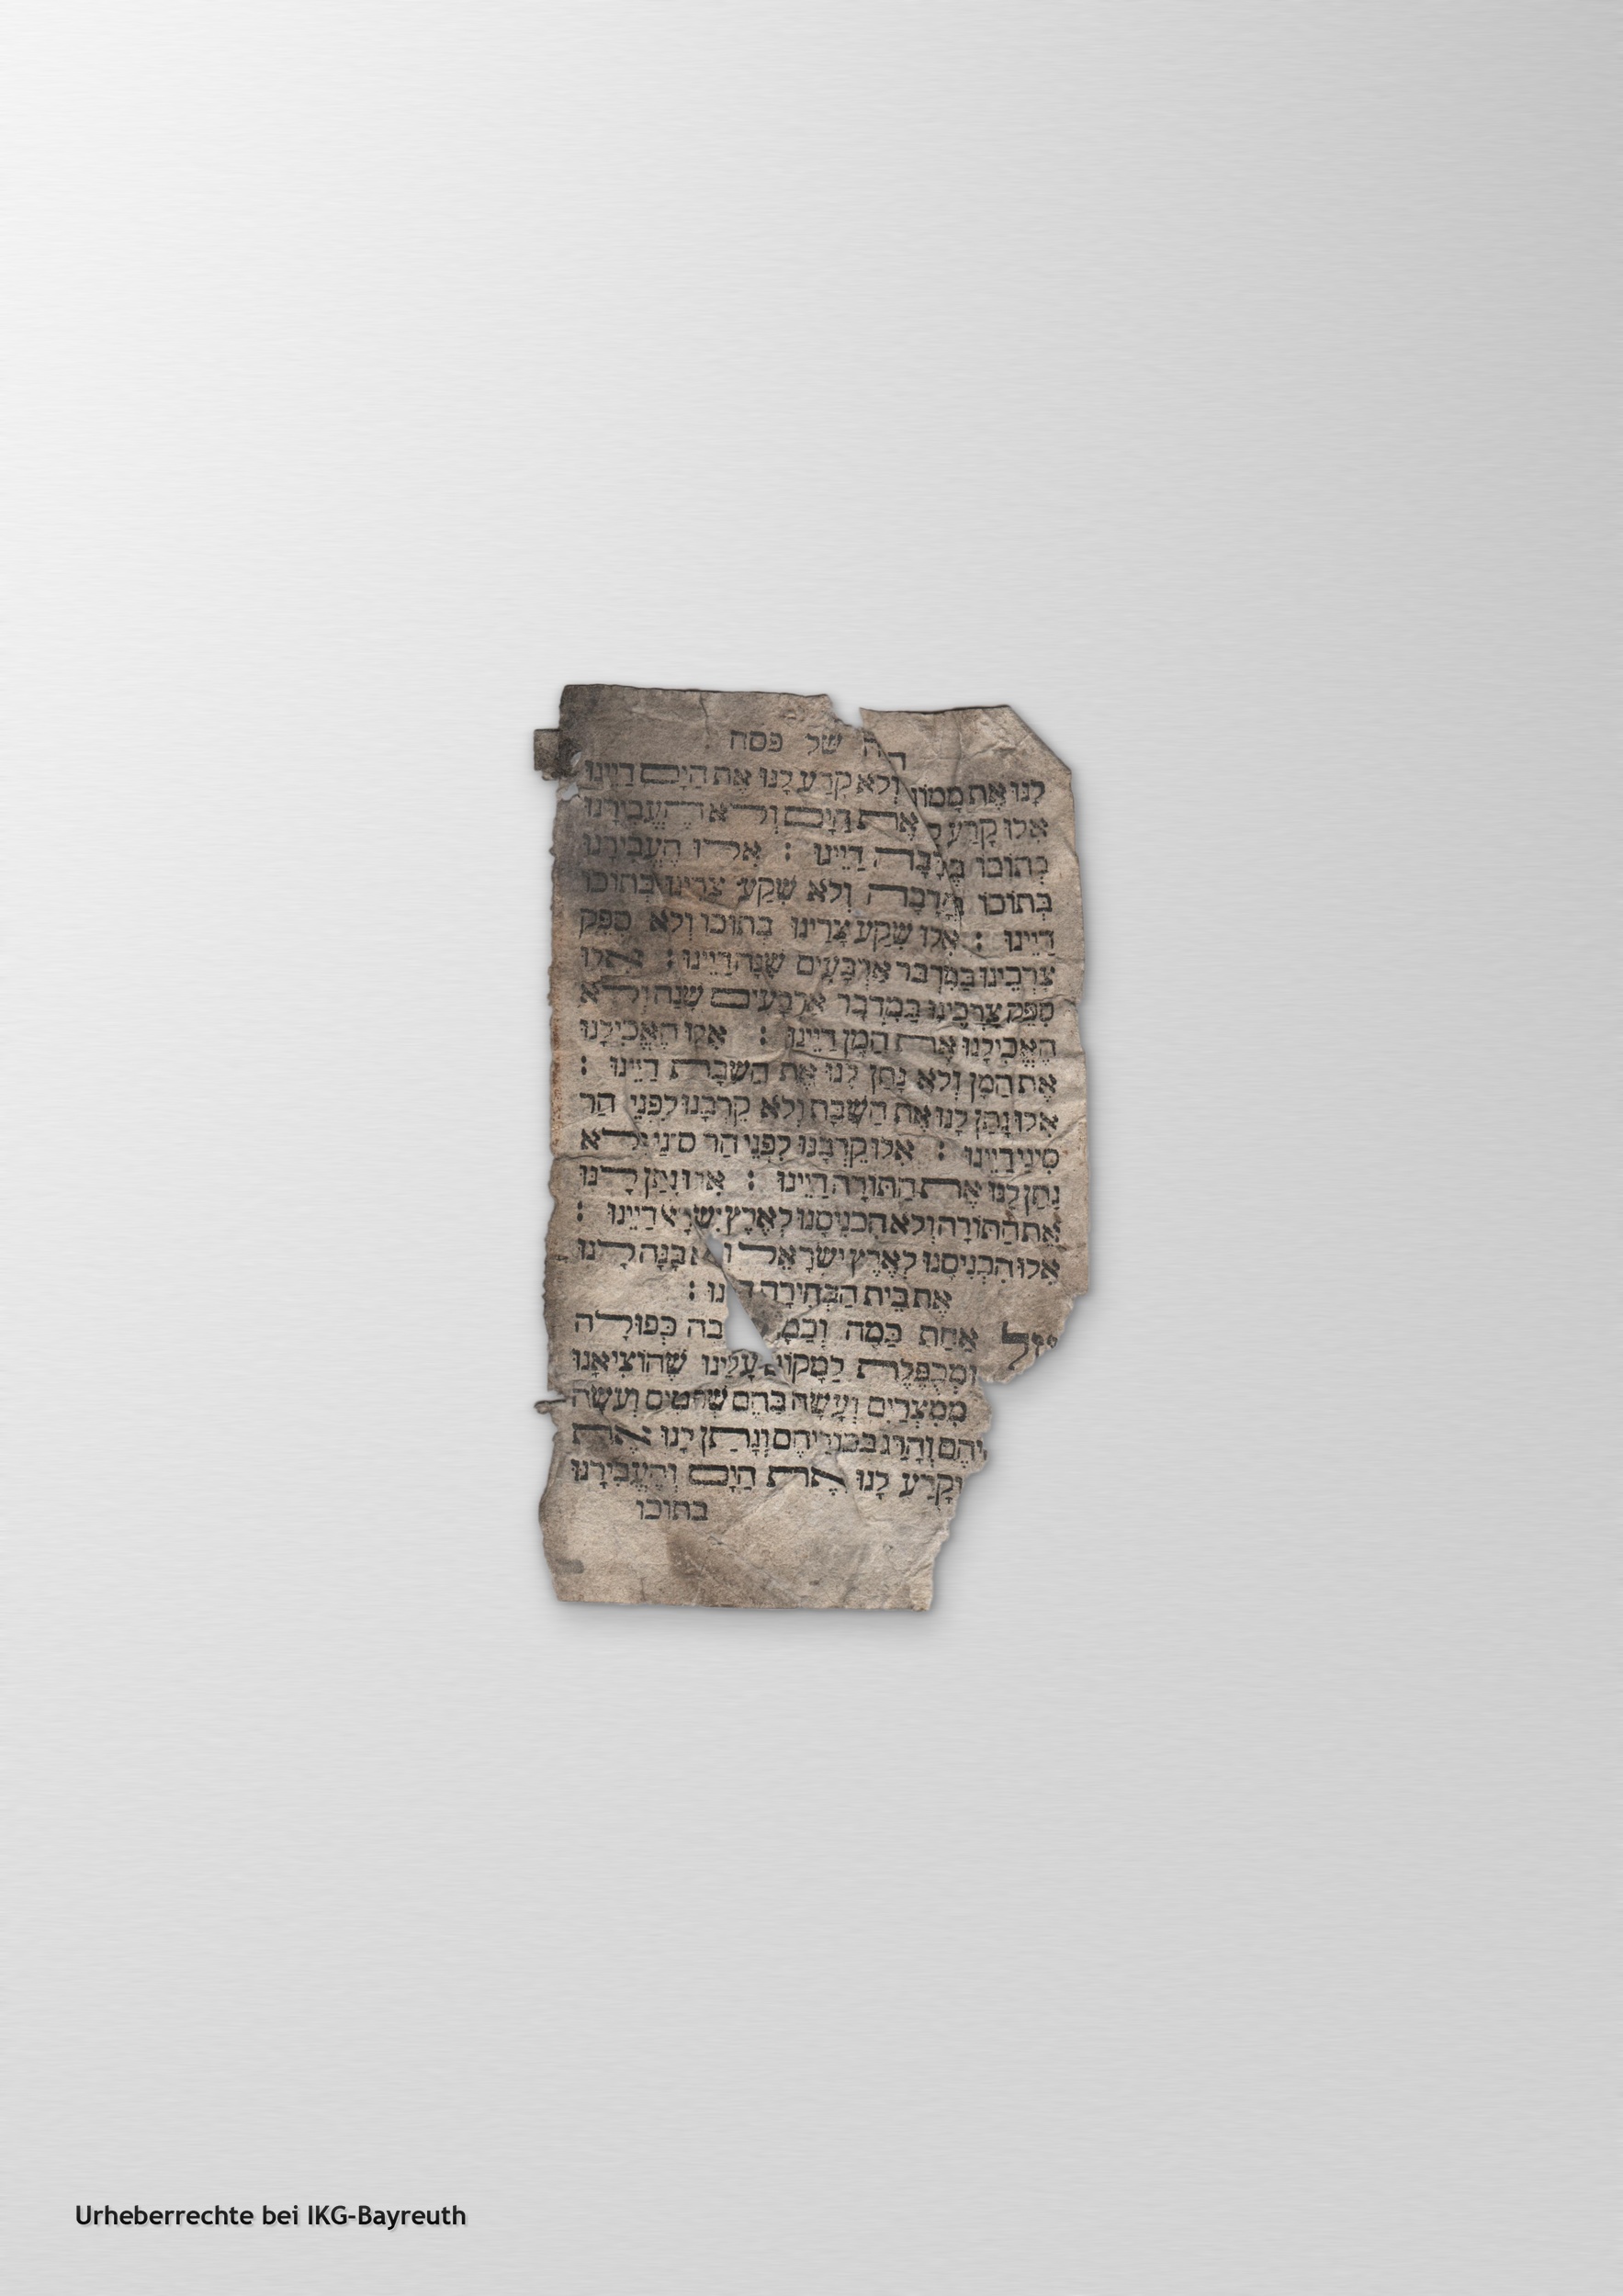 של פסח
לָנוּ אֶת מָמוֹנָ וְלֹא קָרַע לָנוּ אֶת הַיָּם דַּיֵּינוּ
אִלּוּ קָרַע לָ אֶת הַיָּם וְלֹא הֶעֱבִירָנוּ
בְּתוֹכוֹ בֶּחָרָבָה דַּיֵּינוּ : אִלּוּ הֶעֱבִירָנוּ
בְּתוֹכוֹ בֶּחָרָבָה וְלֹא שִׁקַּע צָרֵינוּ בְּתוֹכוֹ
דַּיֵּינוּ : אִלּוּ שִׁקַּע צָרֵינוּ בְּתוֹכוֹ וְלֹא סִפֵּק
צְרָכֵינוּ בַּמִּדְבָּר אַרְבָּעִים שָׁנָה דַּיֵּינוּ : אִלּוּ
סִפֵּק צְרָכֵינוּ בַּמִּדְבָּר אַרְבָּעִים שָׁנָה וְלֹא
הֶאֱכִילָנוּ אֶת הַמָּן דַּיֵּינוּ : אִלּוּ הֶאֱכִילָנוּ
אֶת הַמָּן וְלֹא נָתַן לָנוּ אֶת הַשַּׁבָּת דַּיֵּינוּ :
אִלּוּ נָתַן לָנוּ אֶת הַשַּׁבָּת וְלֹא קֵרְבָנוּ לִפְנֵי הַר
סִינַי דַּיֵּינוּ : אִלּוּ קֵרְבָנוּ לִפְנֵי הַר סִינַי וְלֹא
נָתַן לָנוּ אֶת הַתּוֹרָה דַּיֵּינוּ : אִלּוּ נָתַן לָנוּ
אֶת הַתּוֹרָה וְלֹא הִכְנִיסָנוּ לְאֶרֶץ יִשְׂרָאֵל דַּיֵּינוּ :
אִלּוּ הִכְנִיסָנוּ לְאֶרֶץ יִשְׂרָאֵל וְ א בָּנָה לָנוּ
אֶת בֵּית הַבְּחִירָה דַּ נוּ :
אַחַת כַּמָּה וְכַמָּ בָה כְּפוּלָה
וּמְכֻפֶּלֶת לַמָּקוֹם עָלֵינוּ שֶׁהוֹצִיאָנוּ
מִמִּצְרַיִם וְעָשָׂה בָהֶם שְׁפָטִים וְעָשָׂה
יהֶם וְהָרַג בְּכוֹרֵיהֶם וְנָתַן לָנוּ אֶת
וְקָרַע לָנוּ אֶת הַיָּם וְהֶעֱבִירָנוּ
בתוכו
Urheberrechte bei IKG-Bayreuth